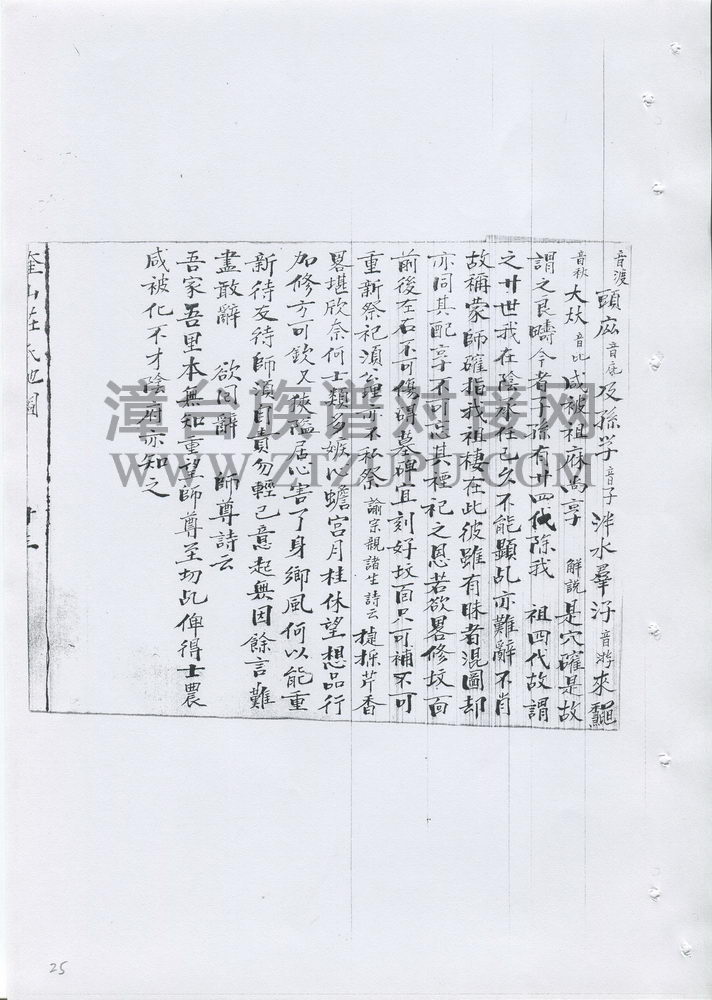 音渡 頭庶 音庇 及孫学 音子 泮水羣浮 音游 來
音秋 大妖 音比 咸被祖庥尚享 解説 是穴確是故
謂之良疇今者子孫有廿四代除我 祖四代故謂
之廿世我在陰水在已久不能顯乩亦難辭不肖
故稱蒙師確指我祖棲在此彼雖有昧者混圖却
亦同其配享不可忘其禋祀之恩若欲畧修坟面
前後左右不可傷謂墓碑且刻好坟面只可補不可
重新祭祀須 亦不私祭 諭宗親諸生詩云 捷採芹香
畧堪欣奈何士類多嫉心蟾宮月桂休望想品行
加修方可欽又 隘居心害了身鄉風何以能重
新待友待師須自責勿輕已意起無因餘言難
盡敢辭 欲問辭 師尊詩云
吾家吾里本無知重望師尊至切乩俾得士農
咸被化不才陰府亦知之
奎山莊氏地圖
漳台族谱对接网
WWW.ZTZUPU.COM
25